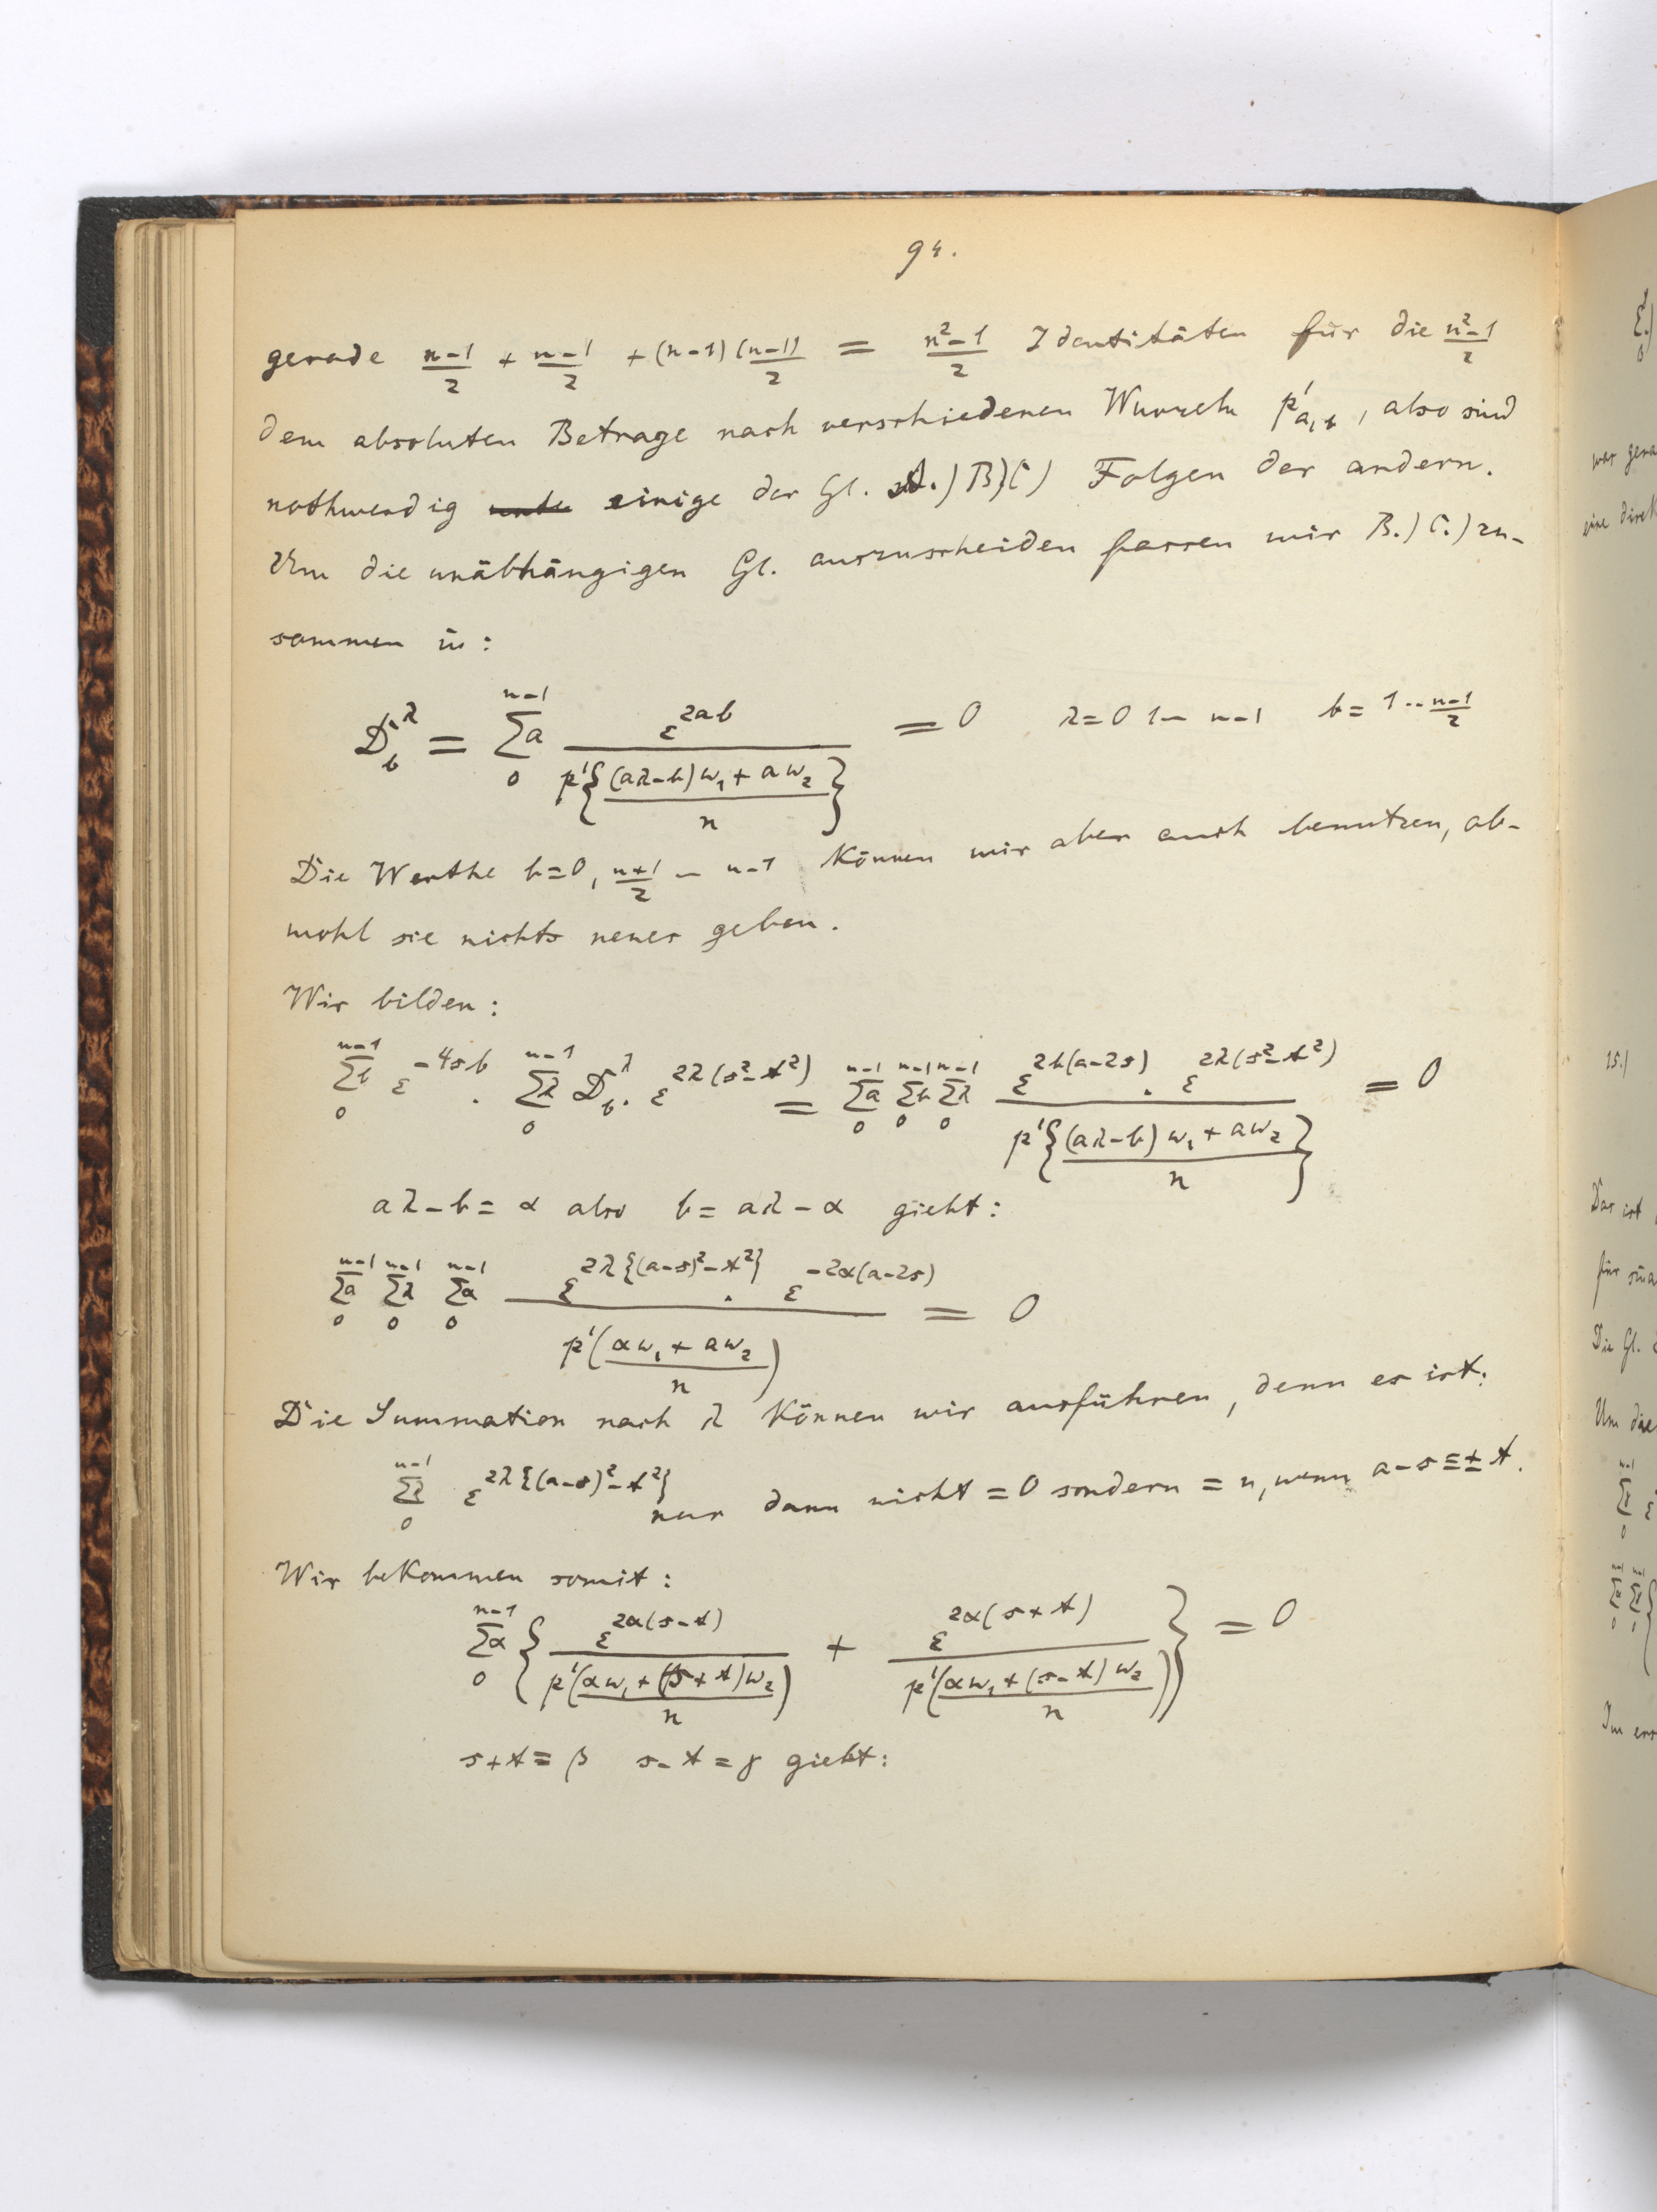 94.
gerade (n-1)/2 + (n-1)/2 + (n-1)(n-1)/2 = (n²-1)/2 Identitäten für die (n²-1)/2
dem absoluten Betrage nach verschiedenen Wurzeln p'_{a,b}, also sind
nothwendig einige der Gl. A.) B)C) Folgen der andern.
Um die unäbhängigen Gl. auszuscheiden fassen wir B.) C.) zu-
sammen in:
D_b^λ = Σa_0^{n-1} ε^{2ab} / p'{((aλ-b)ω₁ + aω₂)/n} = 0 λ=0 1 – n-1 b= 1 ·· (n-1)/2
Die Werthe b=0, (n+1)/2 – n-1 können wir aber auch benutzen, ob-
wohl sie nichts neues geben.
Wir bilden:
Σb_0^{n-1} ε^{-4sb} · Σλ_0^{n-1} D_b^λ · ε^{2λ(s²-t²)} = Σa_0^{n-1} Σb_0^{n-1} Σλ_0^{n-1} ε^{2b(a-2s)} · ε^{2λ(s²-t²)} / p'{((aλ-b)ω₁ + aω₂)/n} = 0
aλ-b = α also b = aλ-α giebt:
Σa_0^{n-1} Σλ_0^{n-1} Σα_0^{n-1} ε^{2λ{(a-s)²-t²}} · ε^{-2α(a-2s)} / p'((αω₁ + aω₂)/n) = 0
Die Summation nach λ können wir ausführen, denn es ist:
Σλ_0^{n-1} ε^{2λ{(a-s)²-t²}} nur dann nicht = 0 sondern = n, wenn a-s ≡ ± t.
Wir bekommen somit:
Σα_0^{n-1} { ε^{2α(s-t)} / p'((αω₁ + (s+t)ω₂)/n) + ε^{2α(s+t)} / p'((αω₁ + (s-t)ω₂)/n) } = 0
s+t = β s-t = γ giebt: